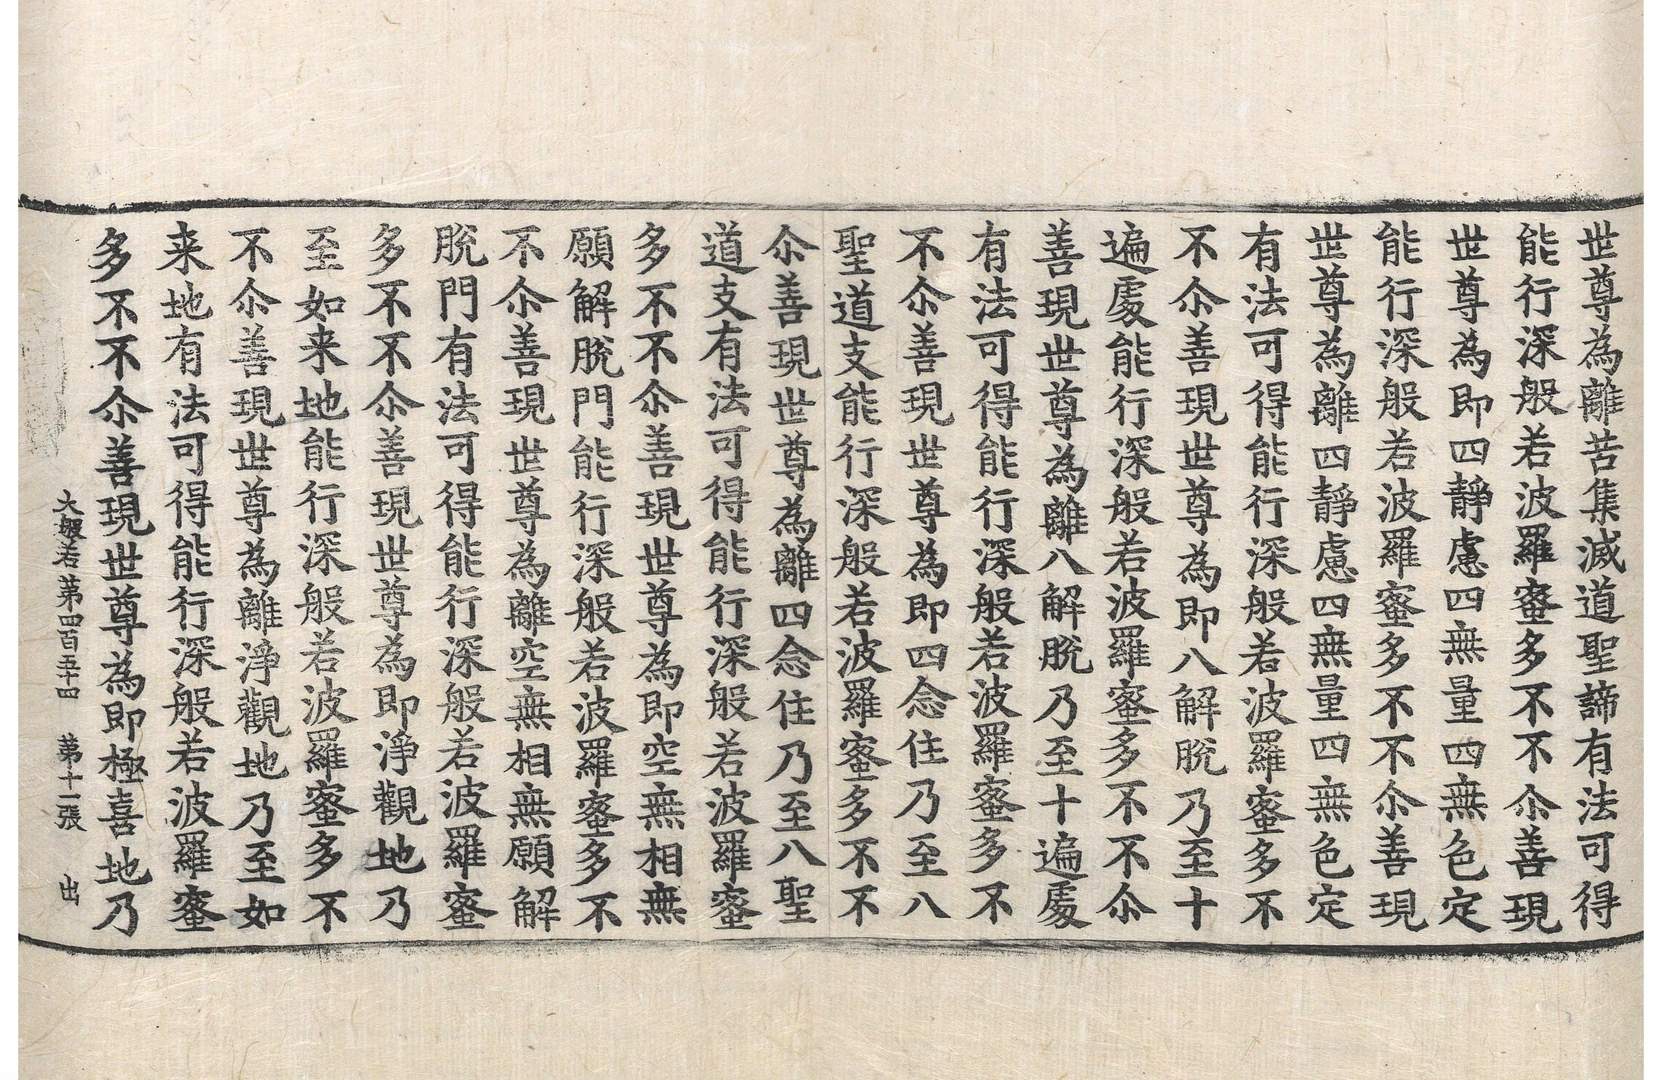 世尊為離苦集滅道聖諦有法可得
能行深般若波羅蜜多不不尒善現
世尊為即四靜慮四無量四無色定
能行深般若波羅蜜多不不尒善現
世尊為離四靜慮四無量四無色定
有法可得能行深般若波羅蜜多不
不尒善現世尊為即八解脫乃至十
遍處能行深般若波羅蜜多不不尒
善現世尊為離八解脫乃至十遍處
有法可得能行深般若波羅蜜多不
不尒善現世尊為即四念住乃至八
聖道支能行深般若波羅蜜多不不
尒善現世尊為離四念住乃至八聖
道支有法可得能行深般若波羅蜜
多不不尒善現世尊為即空無相無
願解脫門能行深般若波羅蜜多不
不尒善現世尊為離空無相無願解
脫門有法可得能行深般若波羅蜜
多不不尒善現世尊為即淨觀地乃
至如来地能行深般若波羅蜜多不
不尒善現世尊為離淨觀地乃至如
来地有法可得能行深般若波羅蜜
多不不尒善現世尊為即極喜地乃
大般若第四百五十四 第十一張 出